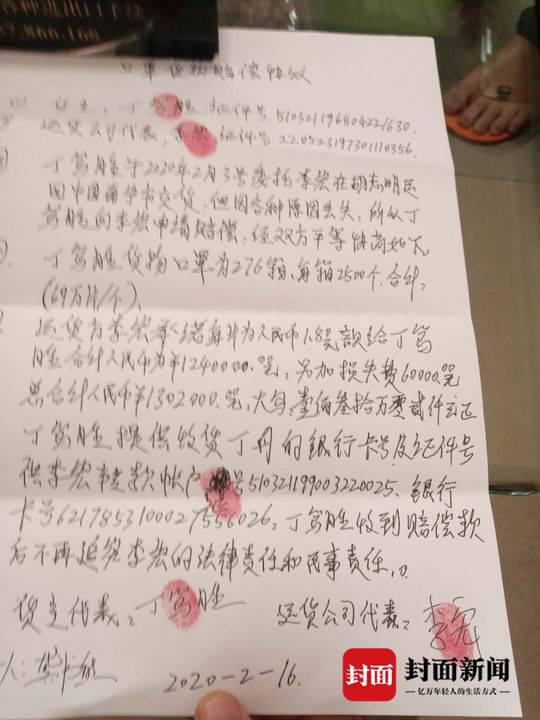 各种进出口
7.866.168
口罩货物赔偿协议
货主，丁笃胜，证件号，510321196804221630.
运货公司代表，李宏 证件号，220523197301110356.
丁笃胜于2020年2月3号委托李宏在胡志明运
回中国 交货，但因各种原因丢失，所以丁
笃胜向李宏申请赔偿，经双方平等协商如下
丁笃胜货物口罩为276箱，每箱2500个，合计：
(69万片/个)、
运货方李宏 为人民币1.8元 给丁笃
胜，合计人民币为¥1240000.元，另加损失费60000.元
总合计人民币¥1302000.元，大写，壹佰叁拾万零贰仟元正
丁笃胜提供收货丁丹的银行卡号及证件号
供李宏转款帐户 号510321199003220025、银行
卡号 ，丁笃胜收到赔偿款
后不再追究李宏的法律责任和民事责任，
货主代表：丁笃胜 运货公司代表：李宏
人：
2020-2-16
封面 封面新闻
亿万年轻人的生活方式